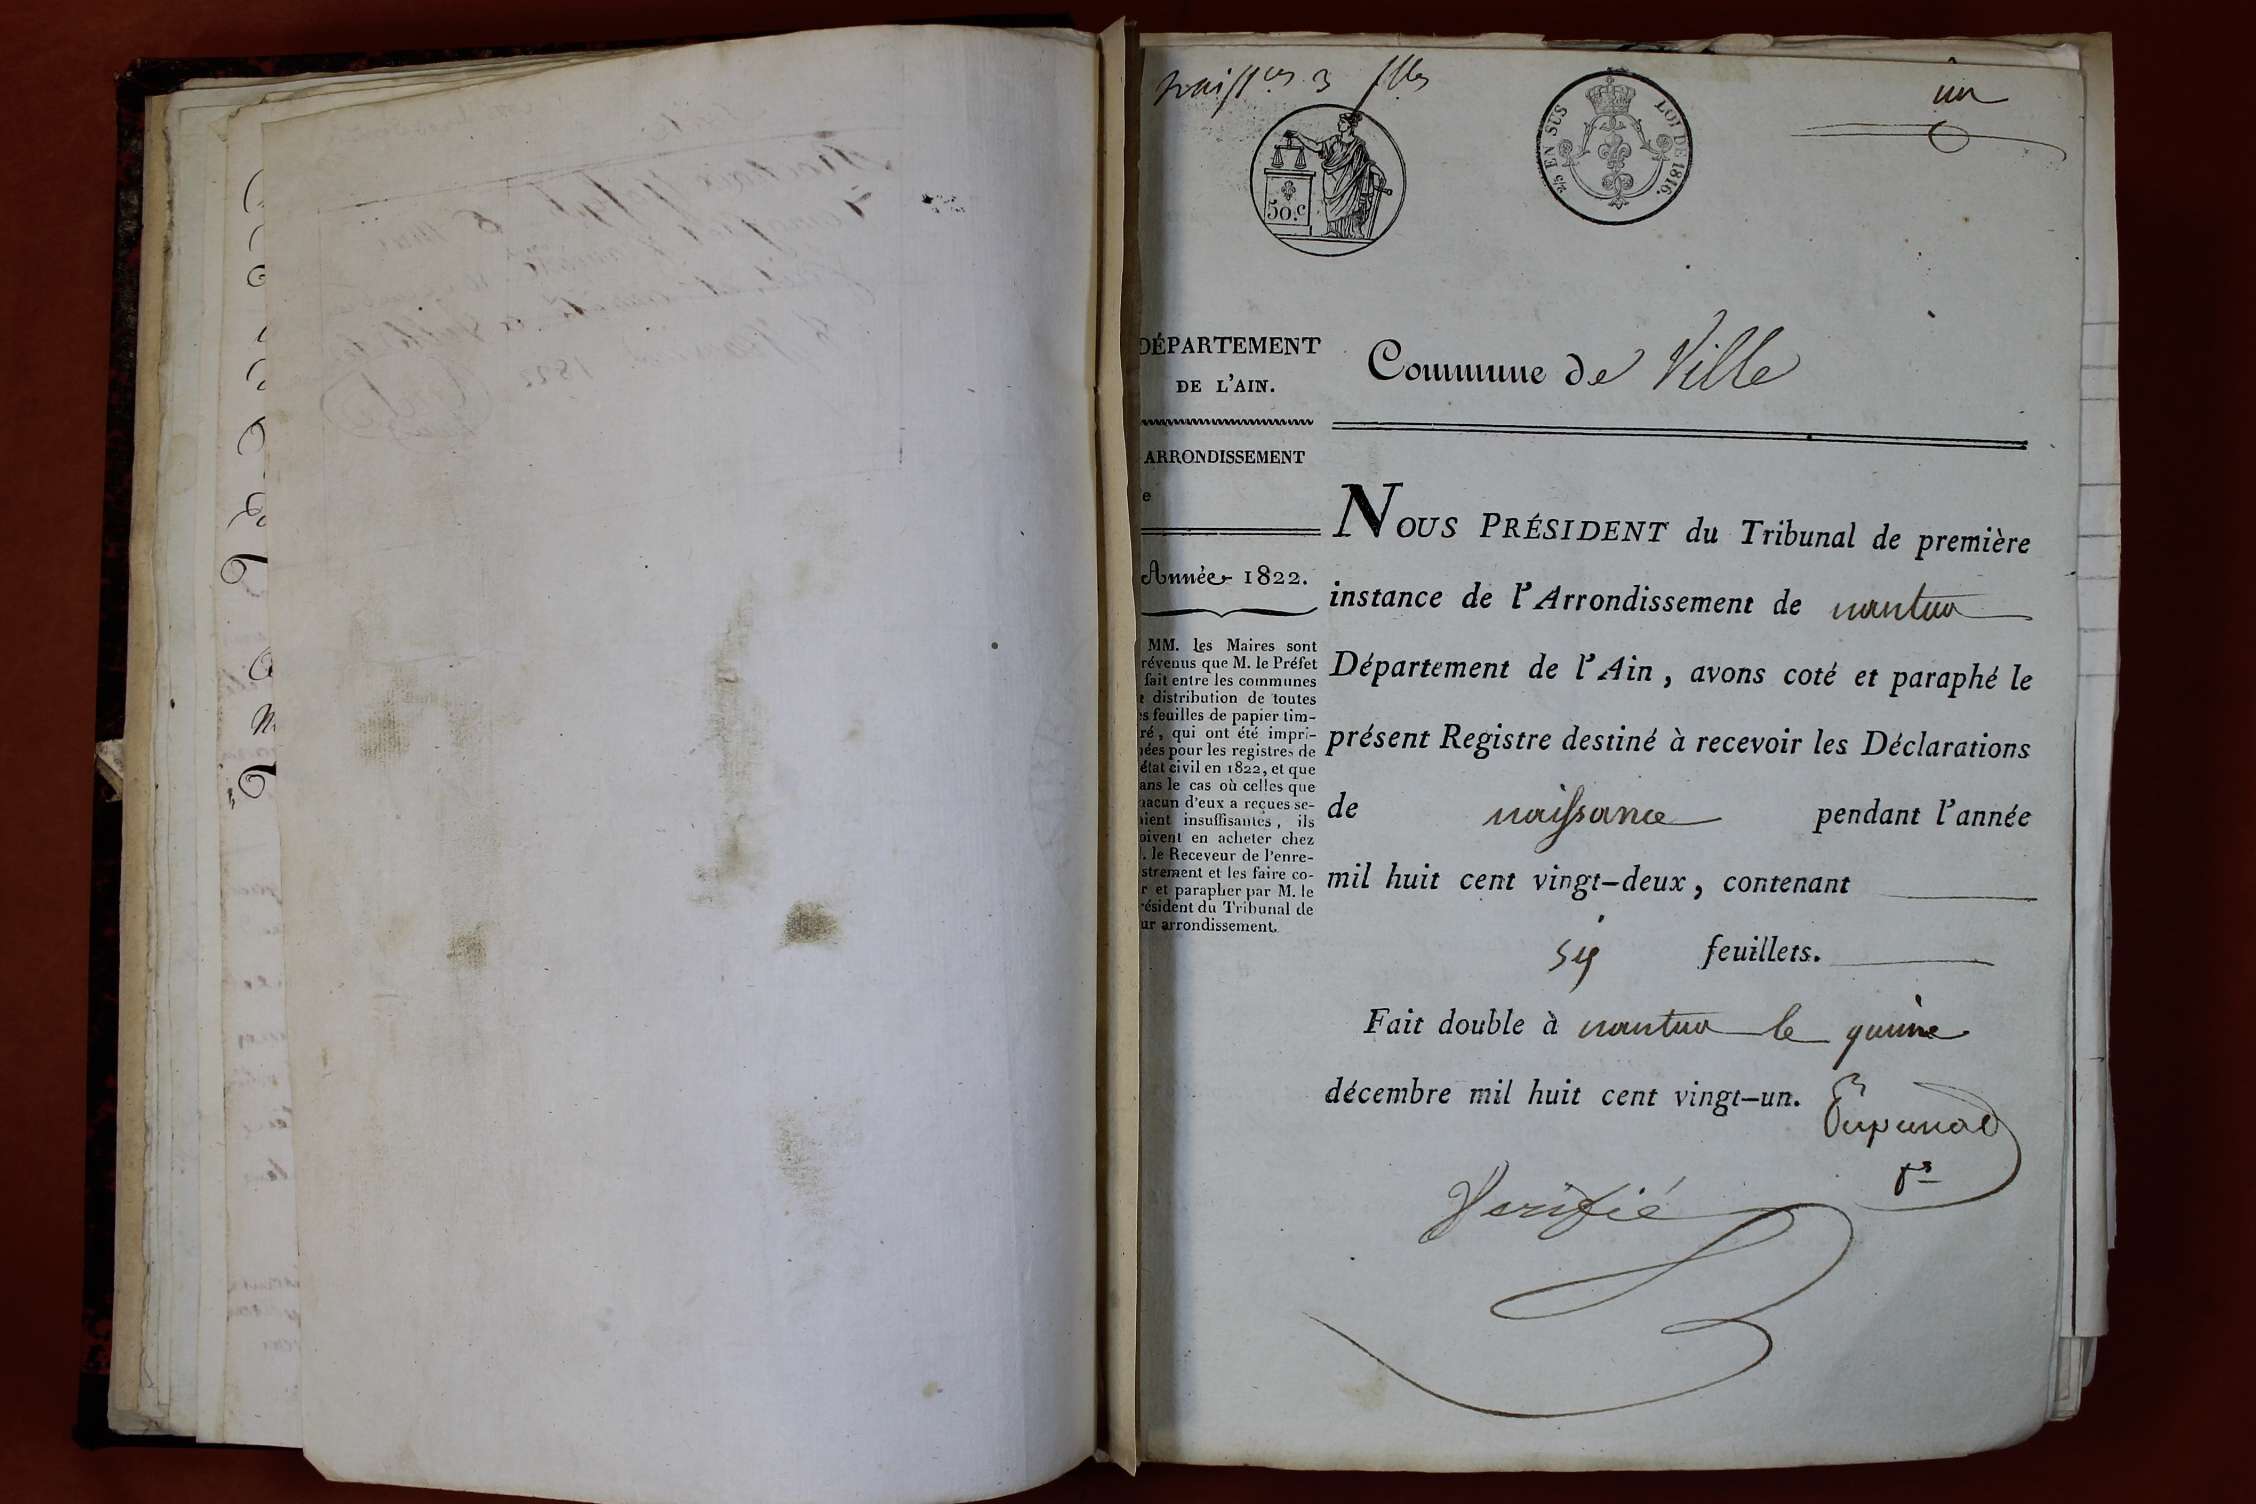 un
50.c
2/5 EN SUS LOI DE 1816.
DÉPARTEMENT
DE L'AIN.
Commune de Ville
ARRONDISSEMENT
e
Année 1822.
MM. les Maires sont
révenus que M. le Préfet
fait entre les communes
e distribution de toutes
es feuilles de papier tim-
ré, qui ont été impri-
ées pour les registres de
état civil en 1822, et que
ans le cas où celles que
hacun d'eux a reçues se-
aient insuffisantes, ils
oivent en acheter chez
. le Receveur de l'enre-
strement et les faire co-
r et parapher par M. le
résident du Tribunal de
ur arrondissement.
NOUS PRÉSIDENT du Tribunal de première
instance de l'Arrondissement de nantua
Département de l'Ain, avons coté et paraphé le
présent Registre destiné à recevoir les Déclarations
de naissance pendant l'année
mil huit cent vingt-deux, contenant
six feuillets.
Fait double à nantua le quinze
décembre mil huit cent vingt-un.
Verifié